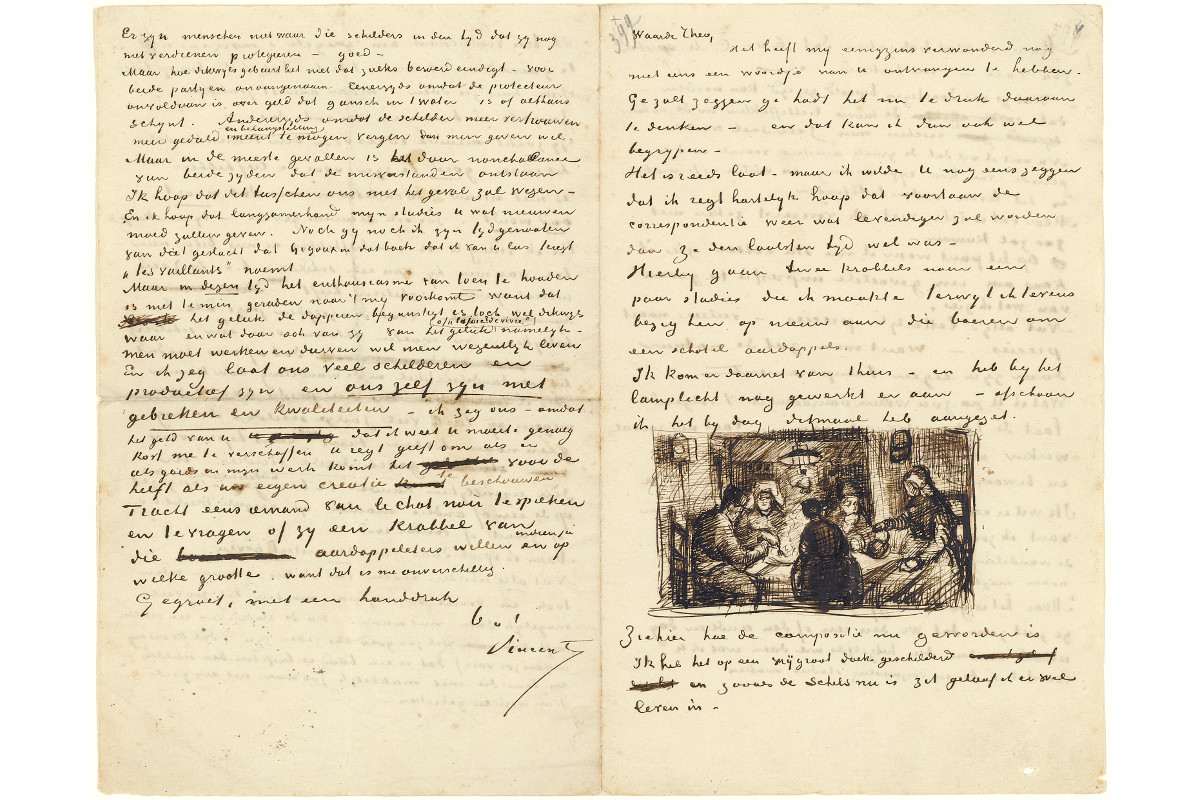 Er zyn menschen niet waar die schilders in den tyd dat zy nog
niet verdienen protegeeren – goed –
Maar hoe dikwyls gebeurt het niet dat zulks beroerd eindigt – voor
beide partyen onaangenaam. Eenerzyds omdat de protecteur
onvoldaan is over geld dat gansch in 't water is of althans
schynt. Anderzyds omdat de schilder meer vertrouwen
meer geduld en belangstelling meent te mogen vergen dan men geven wil
Maar in de meeste gevallen is het door nonchalance
van beide zyden dat de misverstanden ontstaan
Ik hoop dat dit tusschen ons niet het geval zal wezen –
En ik hoop dat langzamerhand myn studies u wat nieuwen
moed zullen geven. Noch gy noch ik zyn tydgenooten
van dit geslacht dat Gigoux in dat boek dat ik van u las
„les vaillants" noemt
Maar in dezen tyd het enthousiasme van toen te houden
is niet te min geraden naar 't my voorkomt want dat
het geluk de dapperen begunstigt is toch wel dikwijls
waar en wat daar ook van zy van het geluk of „la joie de vivre" namelyk –
men moet werken en durven wil men wezentlyk leven
En ik zeg laat ons veel schilderen en
productief zyn en ons zelf zyn met
gebreken en kwaliteiten – ik zeg ons – omdat
het geld van u dat ik weet u moeite genoeg
kost me te verschaffen u regt geeft om als er
iets goeds in myn werk komt het voor de
helft als uw eigen creatie te beschouwen
Tracht eens iemand van le chat noir te spreken
en te vragen of zy een krabbel van
die aardappeleters willen en indien ja op
welke grootte. want dat is me onverschillig.
Gegroet, met een handdruk
b à t
Vincent
Waarde Theo,
het heeft my eenigzins verwonderd nog
niet eens een woordje van u ontvangen te hebben.
Ge zult zeggen ge hadt het nu te druk daaraan
te denken – en dat kan ik dan ook wel
begrypen –
Het is reeds laat – maar ik wilde u nog eens zeggen
dat ik regt hartelyk hoop dat voortaan de
correspondentie weer wat levendiger zal worden
dan ze den laatsten tyd wel was –
Hierby gaan twee krabbels naar een
paar studies die ik maakte terwyl ik tevens
bezig ben op nieuw aan die boeren om
een schotel aardappels.
Ik kom er daarnet van thuis – en heb by het
lamplicht nog gewerkt er aan – ofschoon
ik het by dag ditmaal heb aangezet.
Ziehier hoe de compositie nu geworden is
Ik heb het op een vrij groot doek geschilderd
en zooals de schets nu is zit geloof ik er wel
leven in –